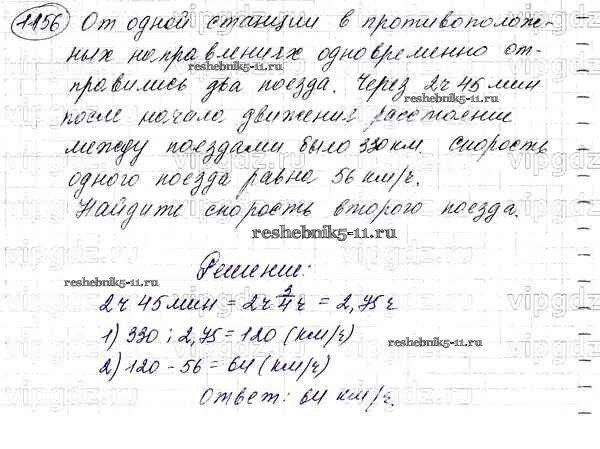 1156 От одной станции в противополож-
ных направлениях одновременно от-
правились два поезда. Через 2ч 45 мин
reshebnik5-11.ru
после начала движения расстояние
между поездами было 330 км. Скорость
одного поезда равна 56 км/ч.
Найдите скорость второго поезда.
reshebnik5-11.ru
Решение:
reshebnik5-11.ru
2ч 45 мин = 2ч 3/4 ч = 2,75 ч
1) 330 : 2,75 = 120 (км/ч)
reshebnik5-11.ru
2) 120 - 56 = 64 (км/ч)
Ответ: 64 км/ч.
vipgdz.ru